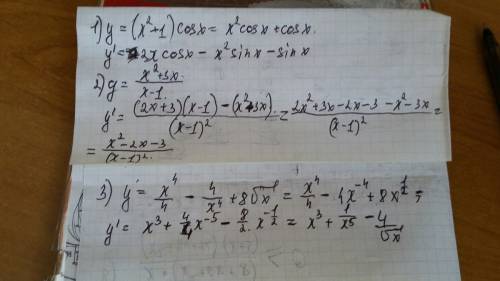 1) y = (x²+1) cosx = x²cosx + cosx.
y' = 2x cosx - x²sinx - sinx
2) y = (x²+3x)/(x-1)
y' = ((2x+3)(x-1) - (x²+3x))/(x-1)² = (2x²+3x-2x-3-x²-3x)/(x-1)² =
= (x²-2x-3)/(x-1)²
3) y = x⁴/4 - 4/x⁴ + 8√x = x⁴/4 - 4x⁻⁴ + 8x^(1/2) =
y' = x³ + 4x⁻⁵ - 8/2 x^(-1/2) = x³ + 4/x⁵ - 4/√x